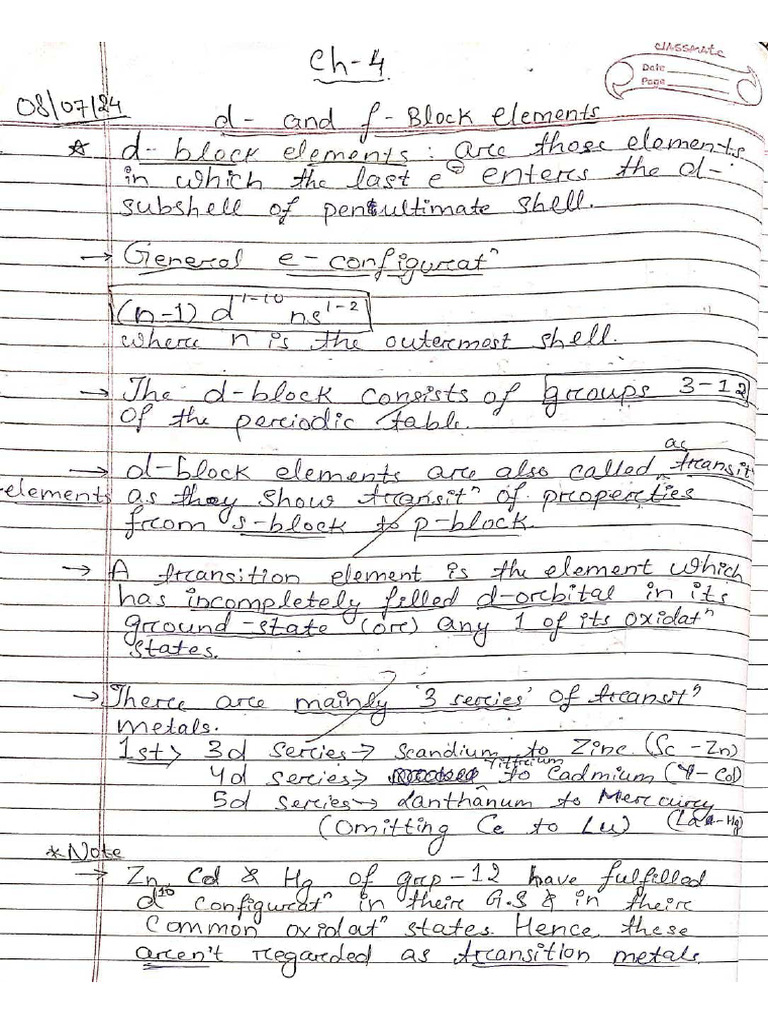 Ch-4
classmate
Date
Page
08/07/24
d- and f-Block elements
☆ d-block elements: are those elements
in which the last e⁻ enters the d-
subshell of penultimate shell.
→ General e-configuratⁿ
(n-1) d¹⁻¹⁰ ns¹⁻²
where n is the outermost shell.
→ The d-block consists of groups 3-12
of the periodic table.
as
→ d-block elements are also called transitⁿ
elements as they show transitⁿ of properties
from s-block to p-block.
→ A transition element is the element which
has incompletely filled d-orbital in its
ground-state (or) any 1 of its oxidatⁿ
states.
→ There are mainly '3 series' of transitⁿ
metals.
1st> 3d series → Scandium to Zinc (Sc-Zn)
4d series → Yittrium to Cadmium (Y-Cd)
5d series → Lanthanum to Mercury
(Omitting Ce to Lu) (La-Hg)
*Note
→ Zn, Cd & Hg of grp-12 have fulfilled
d¹⁰ configuratⁿ in their G.S & in their
common oxidatⁿ states. Hence, these
aren't regarded as transition metals.